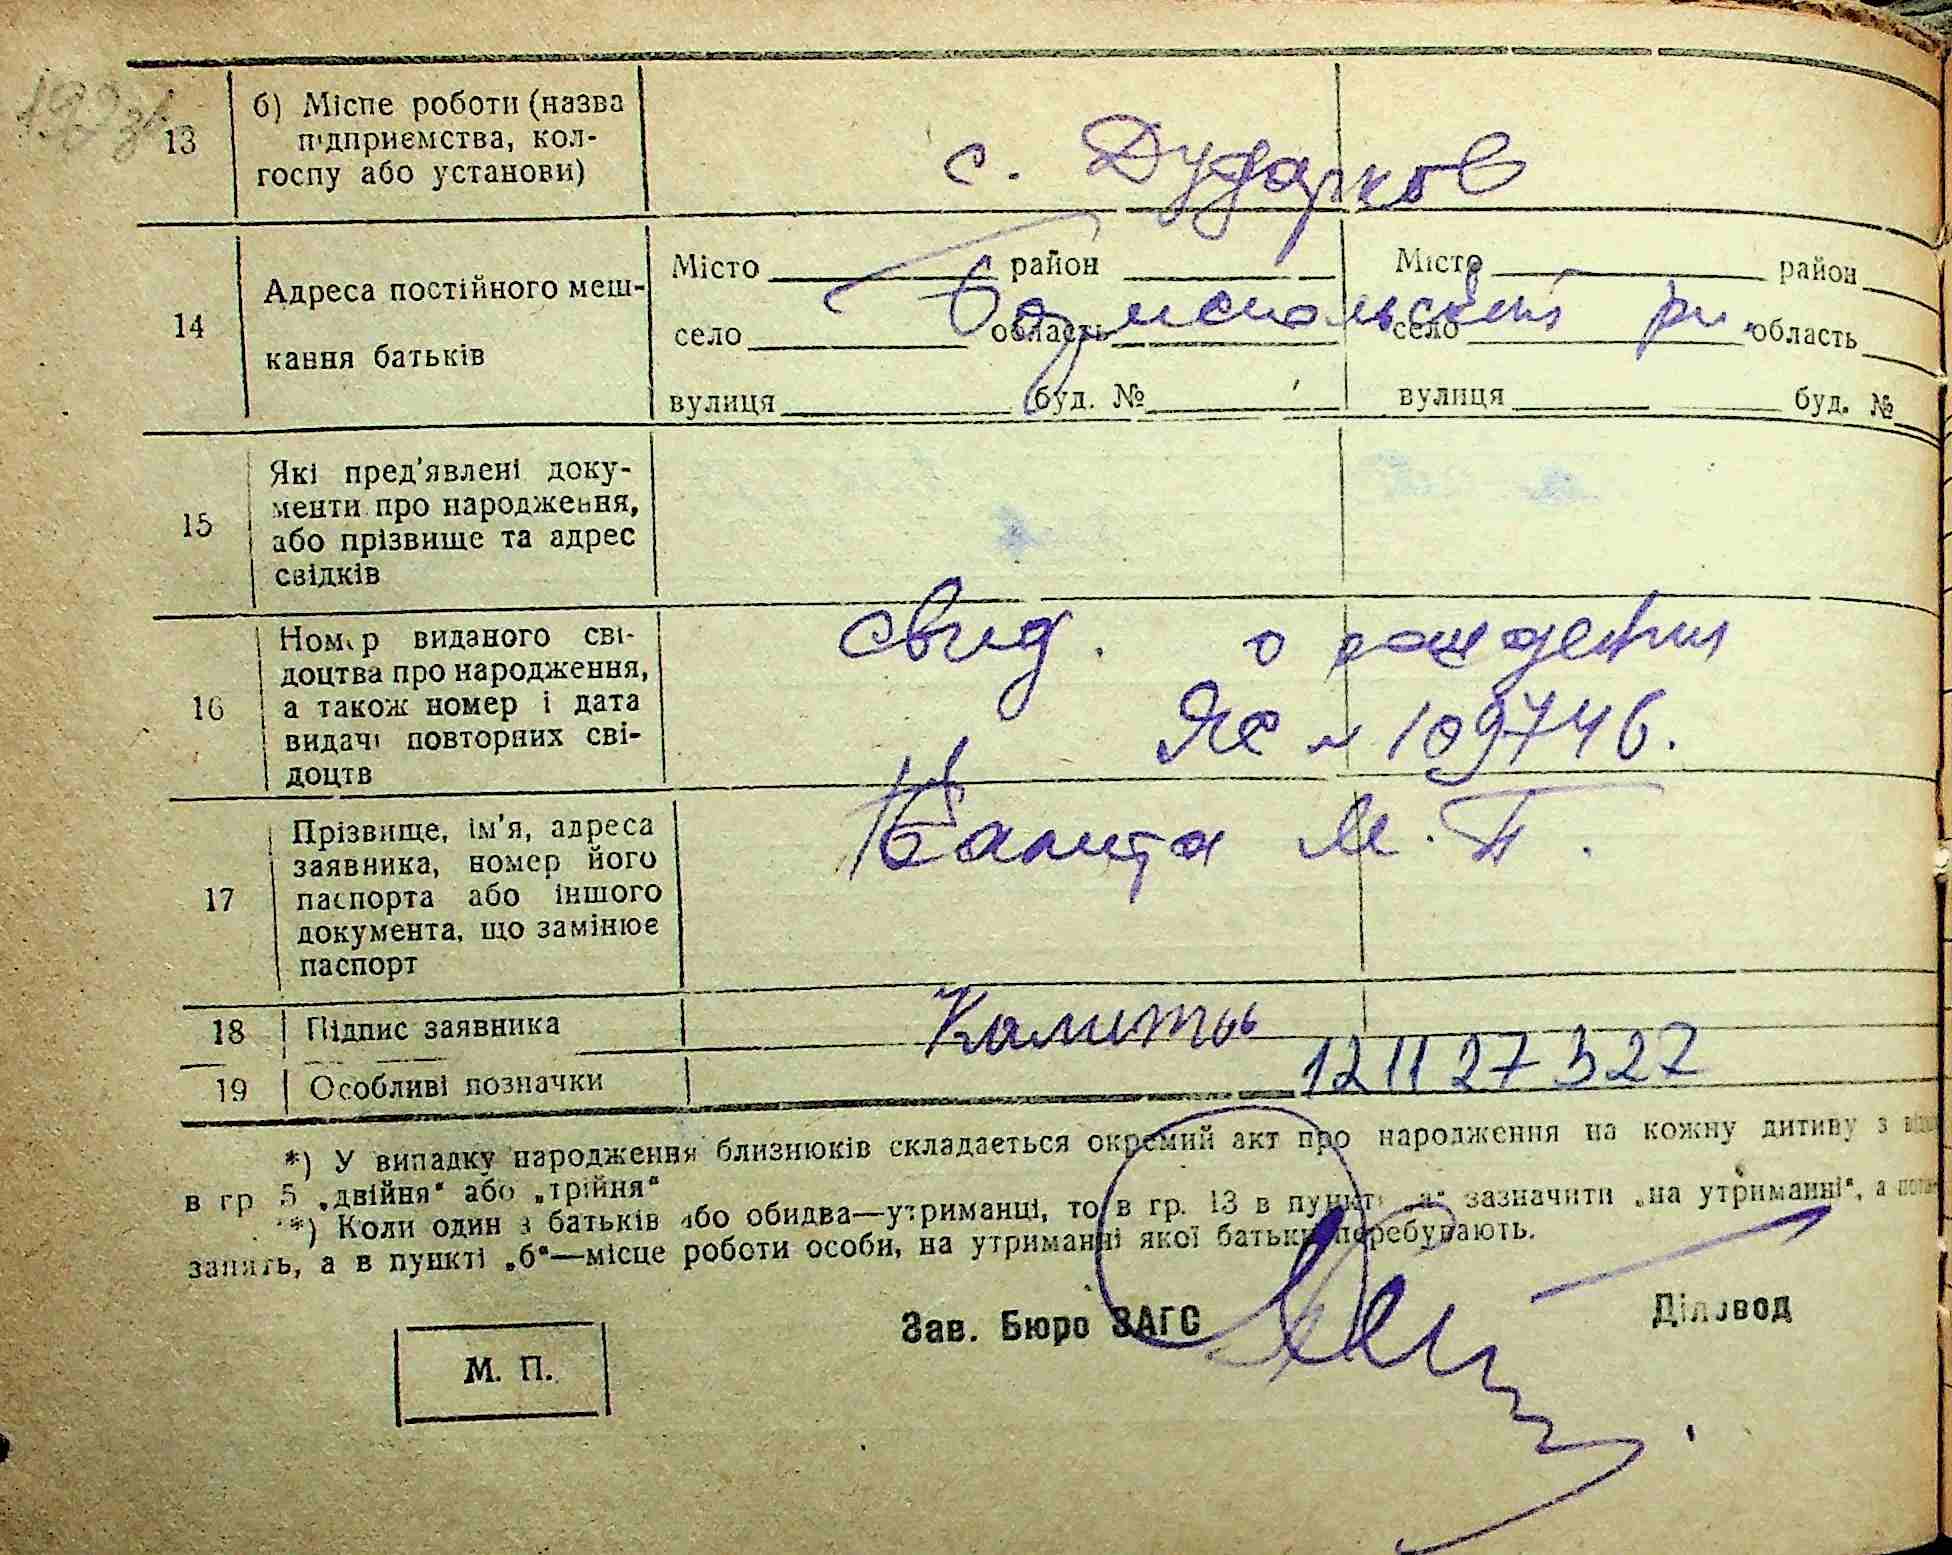 б) Місце роботи (назва
13 підприємства, кол-
госпу або установи)
с. Дударков
14 Адреса постійного меш-
кання батьків
Місто район Місто район
Бориспольский рн.
село область село область
вулиця буд. № вулиця буд. №
15 Які пред'явлені доку-
менти про народження,
або прізвище та адрес
свідків
16 Номер виданого сві-
доцтва про народження,
а також номер і дата
видачі повторних сві-
доцтв
свид. о рождении
ЯС № 109746.
17 Прізвище, ім'я, адреса
заявника, номер його
паспорта або іншого
документа, що замінює
паспорт
Калита М. П.
18 Підпис заявника Калита
19 Особливі позначки 121127322
*) У випадку народження близнюків складається окремий акт про народження на кожну дитину з
в гр 5 „двійня" або „трійня"
*) Коли один з батьків або обидва—утриманці, то в гр. 13 в пункті „а" зазначити „на утриманні", а
занять, а в пункті „б"—місце роботи особи, на утриманні якої батьки перебувають.
Зав. Бюро ЗАГС Діловод
М. П.